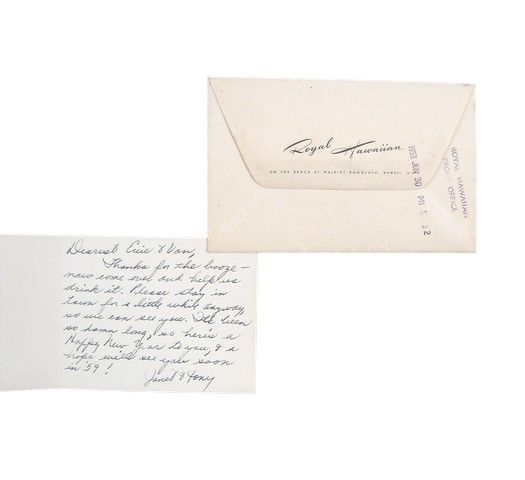 Royal Hawaiian
ON THE BEACH AT WAIKIKI HONOLULU, HAWAII,
ROYAL HAWAIIAN
FRONT OFFICE
30 PM 5 32
Dearest Evie & Van,
Thanks for the booze –
now come over and help us
drink it. Please stay in
town for a little while anyway,
so we can see you. It's been
so damn long, so here's a
Happy New Year to you, & I
hope we'll see you soon
in 59!
Janet & Tony